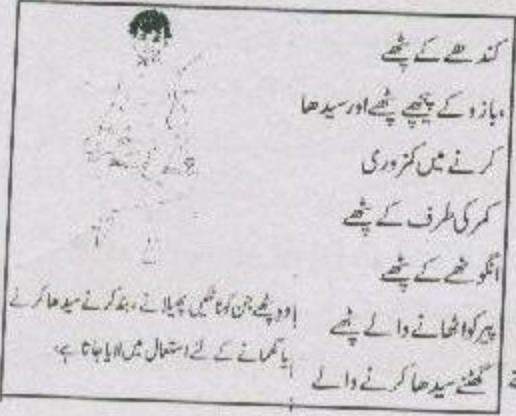 کندھے کے پٹھے
بازو کے پیچھے پٹھے اور سیدھا
کرنے میں کمزوری
کمر کی طرف کے پٹھے
انگوٹھے کے پٹھے
پیر کو اٹھانے والے پٹھے
گھٹنے سیدھا کرنے والے
وہ پٹھے جن کو ٹانگیں پھیلانے، بند کرنے سیدھا کرنے
یا گھمانے کے لئے استعمال میں لایا جاتا ہے،